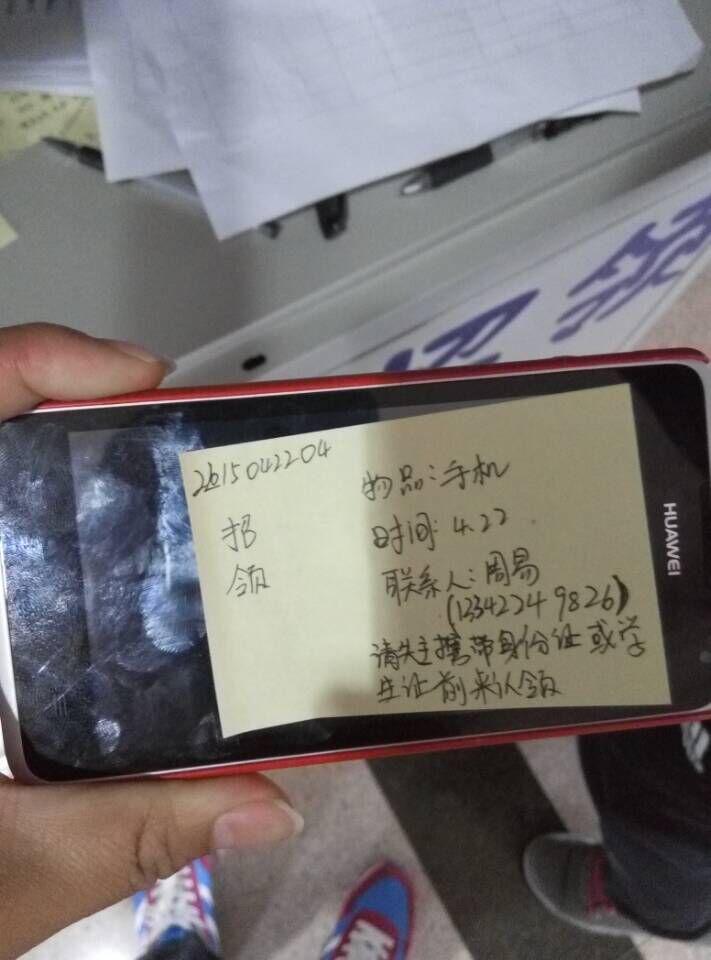 2015042204
招
领
物品:手机
时间:4.22
联系人:周易
(12342249826)
请失主携带身份证或学
生证前来认领
HUAWEI